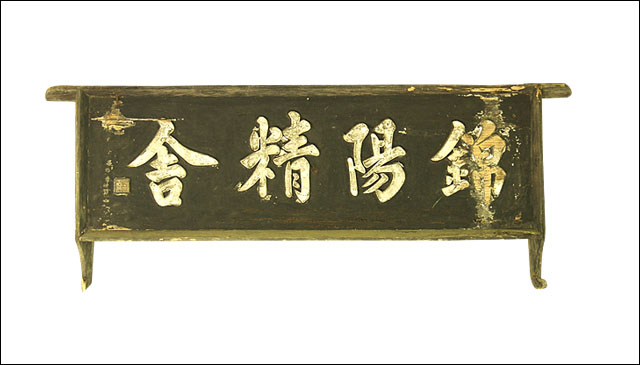 錦陽精舍